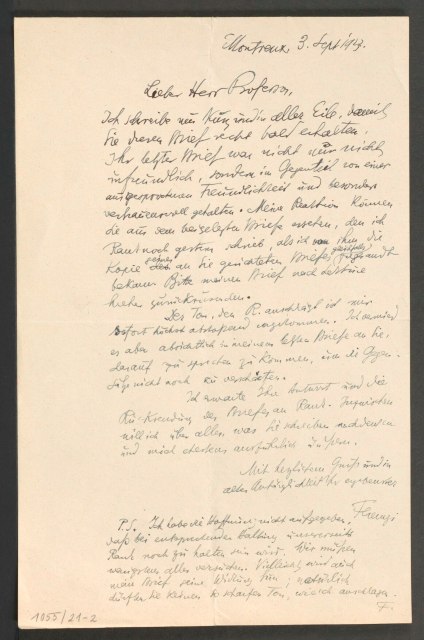 Montreux, 3. Sept 1924.
Lieber Herr Professor,
Ich schreibe nur kurz und in aller Eile, damit
Sie diesen Brief recht bald erhalten.
Ihr letzter Brief war nicht nur nicht
unfreundlich, sondern im Gegenteil von einer
ausgesprochenen Freundlichkeit und besonders
vertrauensvoll gehalten. Meine Reaktion können
Sie aus dem beigelegten Briefe ersehen, den ich
Rank noch gestern schrieb, als ich von Ihnen die
Kopie seines an Sie gerichteten Briefes
bekam. Bitte meinen Brief nach Lektüre
hieher zurückzusenden.
Der Ton, den R. anschlägt ist mir
sofort höchst abstoßend vorgekommen. Ich vermied
es aber absichtlich in meinem letzten Briefe an Sie,
darauf zu sprechen zu kommen, um die Gegen-
sätze nicht noch zu verschärfen.
Ich erwarte Ihre Antwort und die
Rück-sendung des Briefes an Rank. Inzwischen
will ich über alles was Sie schreiben nachdenken
und mich ehestens ausführlich äußern.
Mit herzlichem Gruß und in
alter Anhänglichkeit Ihr ergebenster
Ferenczi
P.S. Ich habe die Hoffnung nicht aufgegeben,
daß bei entsprechender Haltung unsererseits
Rank noch zu halten sein wird. Wir müssen
wenigstens alles versuchen. Vielleicht wird auch
mein Brief seine Wirkung tun; natürlich
dürften Sie keinen so scharfen Ton, wie ich anschlagen.
F.
1055/21-2